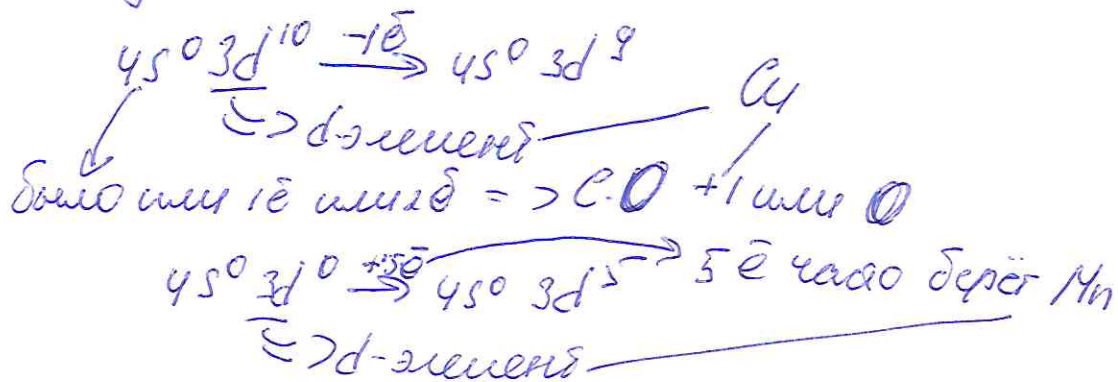 4s⁰ 3d¹⁰ —1ē→ 4s⁰ 3d⁹
=> d-элемент — Cu
было или 1ē или 2ē => С.О +1 или 0
4s⁰ 3d⁰ +5ē→ 4s⁰ 3d⁵ → 5ē часто берёт Mn
=> d-элемент